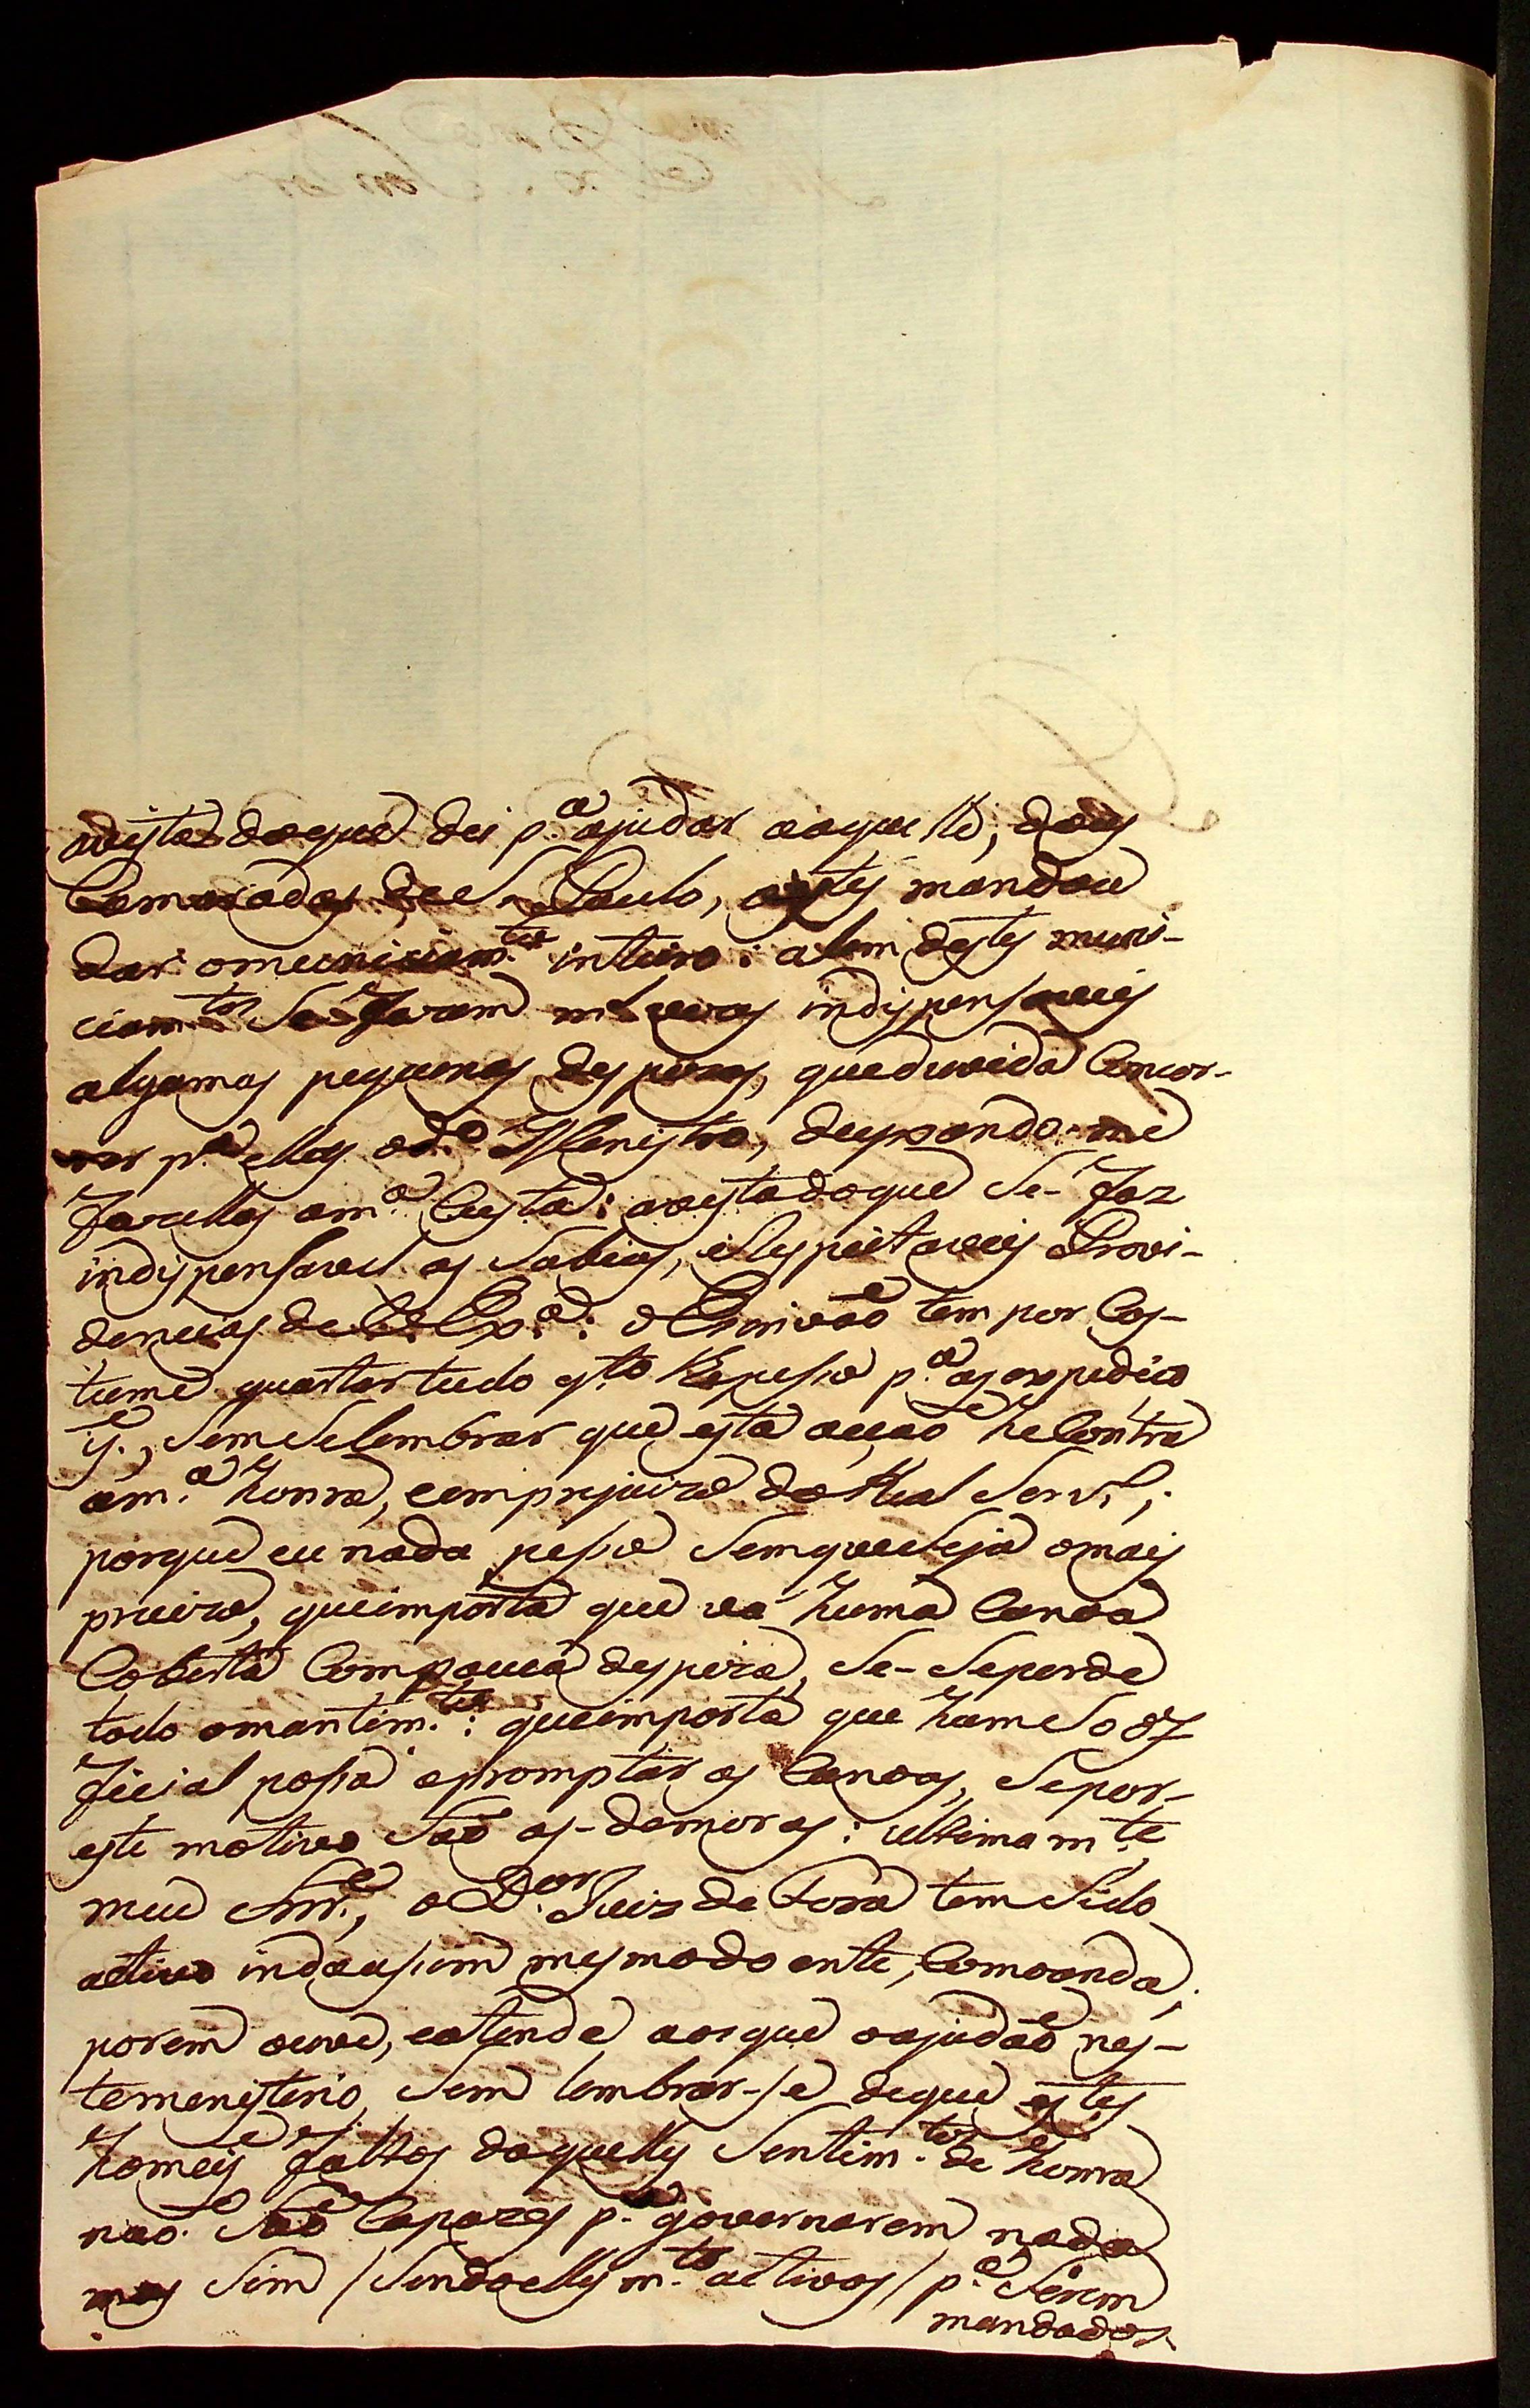 avista doque dei p.ª ajudar aaquelle, dous
Camaradas de S. Paulo, aestes mandou
dar omuniciam.to inteiro: alem destes muni-
ciam.tos Se-fazem m.tas vezes indispensaveis
algumas pequenas despezas, queduvida Concor-
rer p.ª ellas od.o Menistro, deixando-me
fazellas am.ª Custa: avistadoque Se-faz
indispensavel as Sabias, eRespeitaveis Provi-
dencias de V. Ex.ª: oEscrivaõ tem por Cos-
tume quartar tudo q.to Repesso p.ª as expedico
is., Sem Selembrar que esta acçaõ he Contra
am.ª honra, eemprejuizo do Real Serv.ço;
porque eu nada pesso Semque seja omais
precizo, queimporta que vá huma Canoa
Coberta Compouca despeza, Se-Seperde
todo omantim.to: queimporta que hum So of
ficial possa apromptar as Canoas, Sepor-
este motivo Saõ as-demoras: ultimam.te
meu Snr.e, o D.or Juiz de Fora tem Sido
activo indacssim mesmodo ente, Comoanda,
porem ouve, eatende aosque oajudaõ nes-
temenisterio, Sem lembrar-se deque estes
homeis faltos daquelles Sentim.tos de honra
naõ Saõ Capazes p.ª governarem nada
mas Sim /Sendoelles m.to activos/ p.ª Serem
mandados.